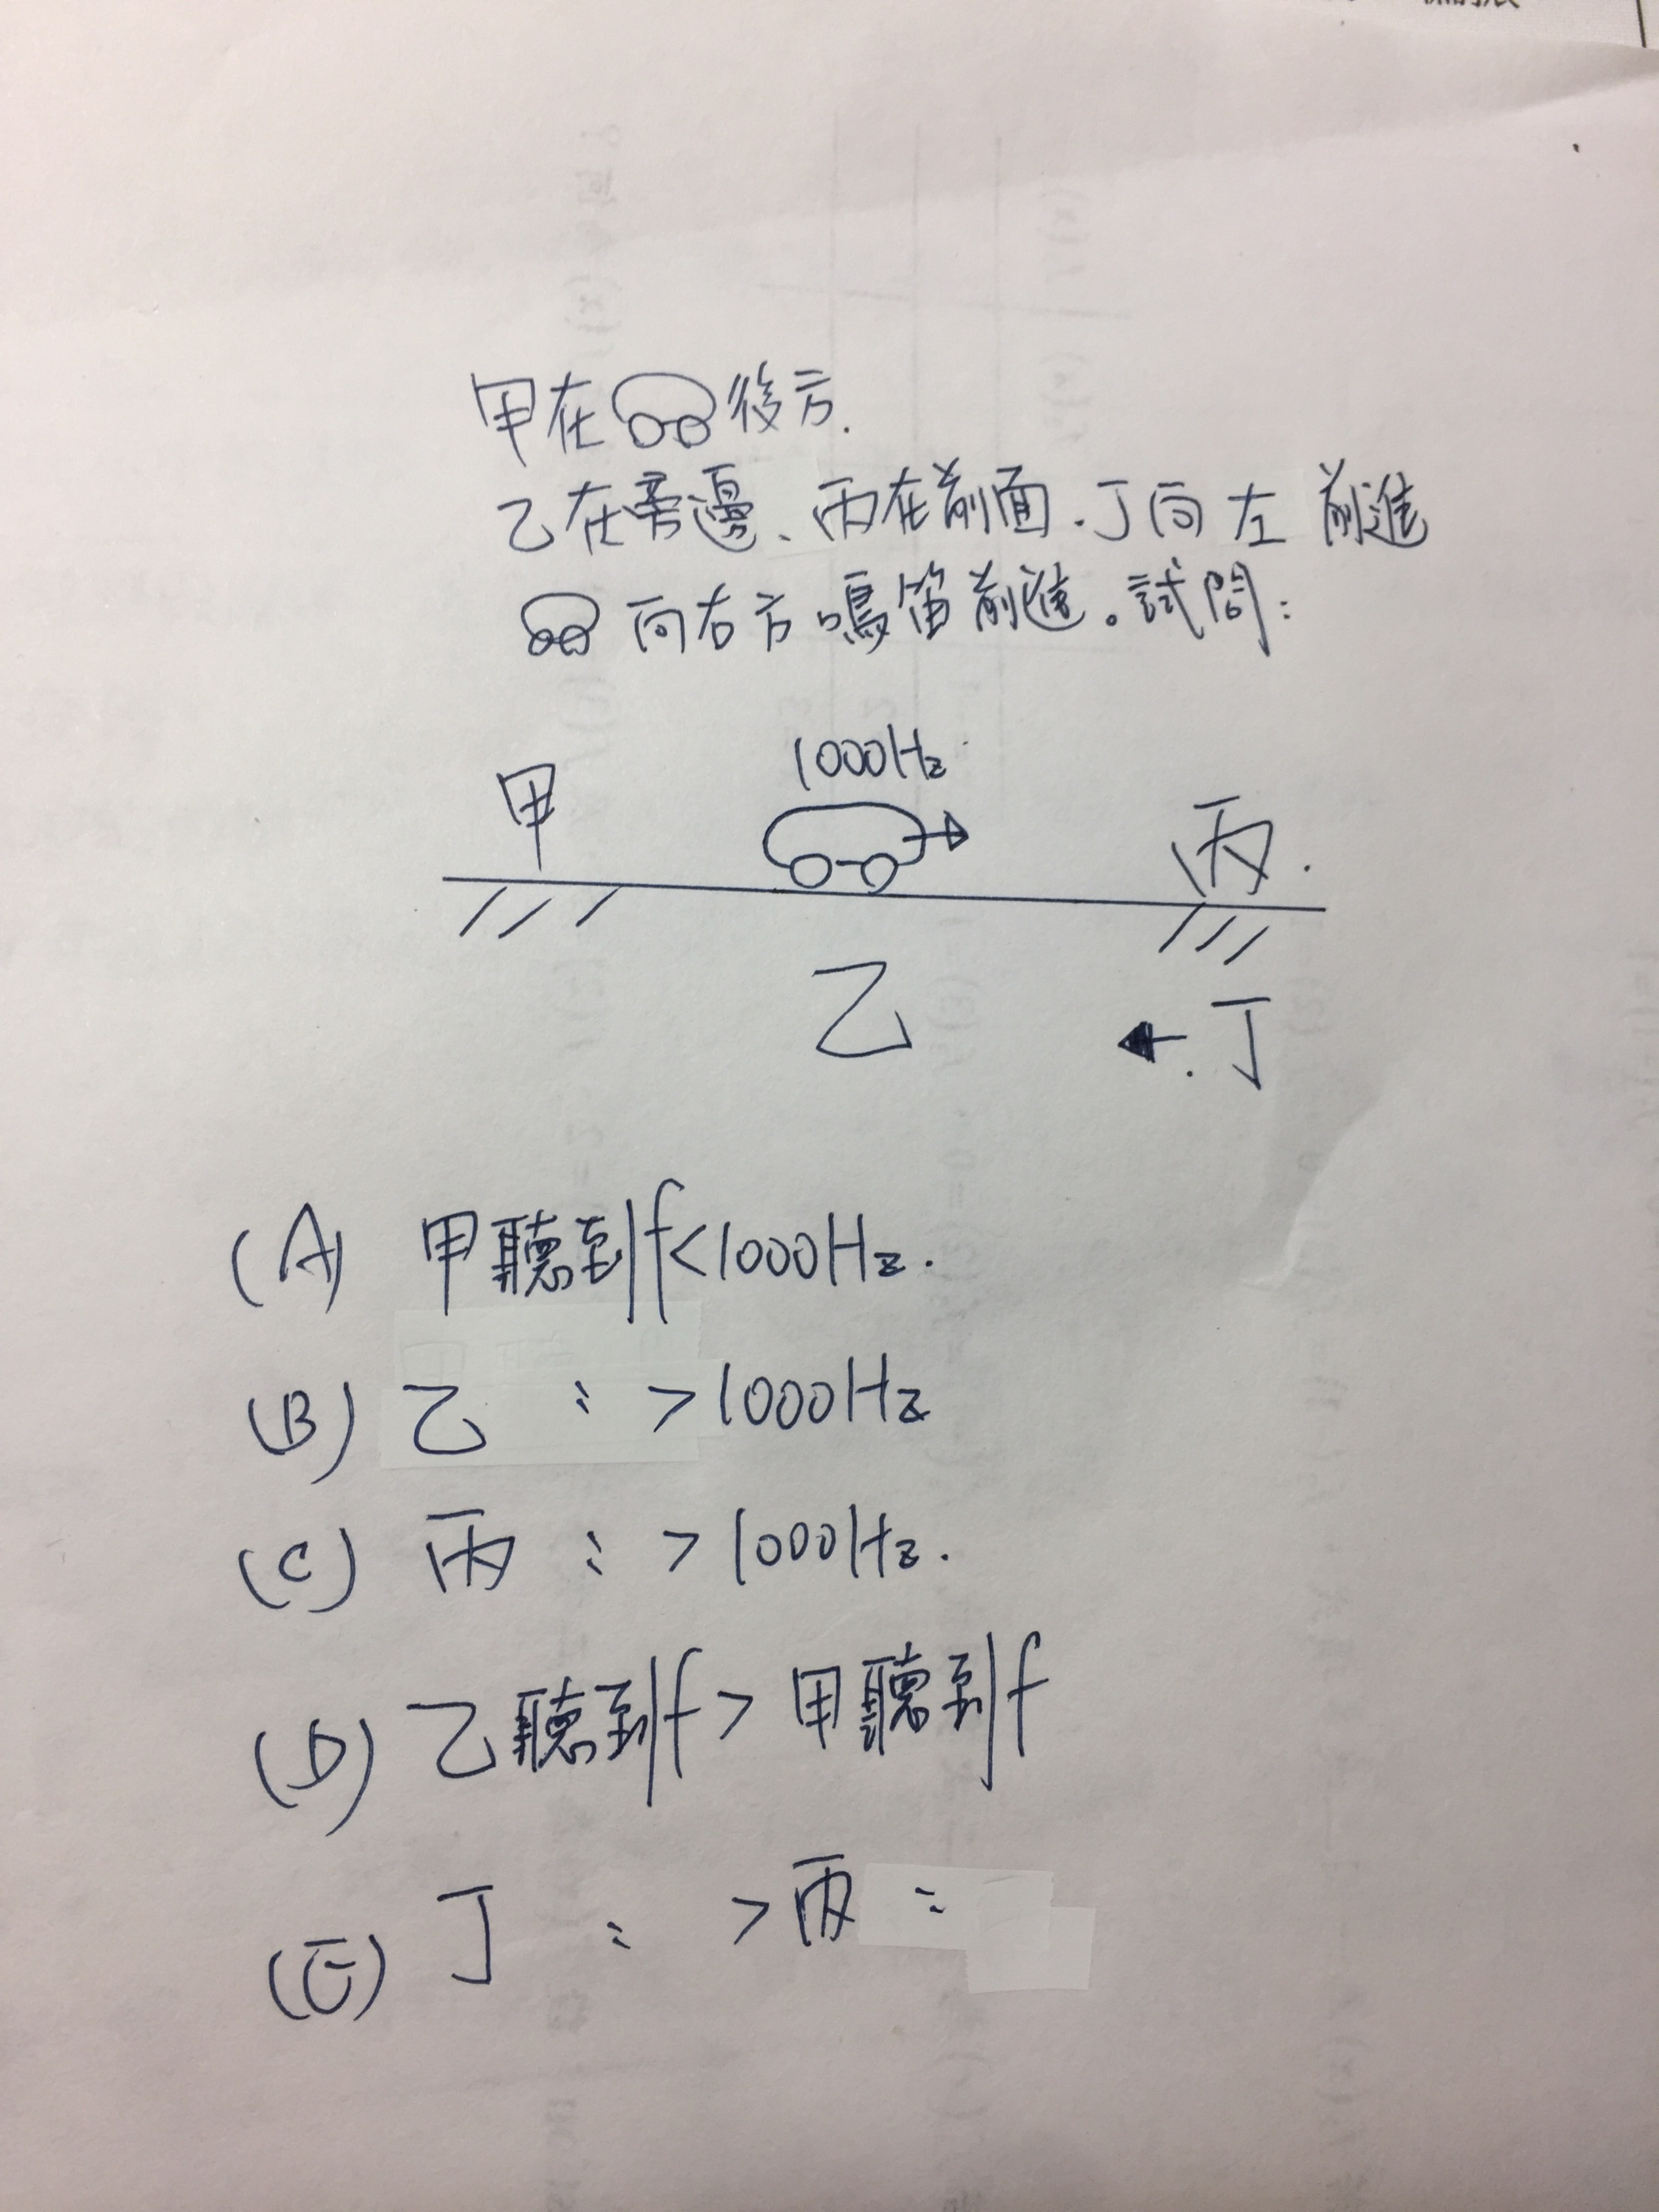 甲在後方.
乙在旁邊、丙在前面.丁向左前進
向右方鳴笛前進。試問:
1000Hz
甲
丙.
乙
丁
(A) 甲聽到f<1000Hz.
(B) 乙 : >1000Hz
(C) 丙 : >1000Hz.
(D) 乙聽到f>甲聽到f
(E) 丁 : >丙 :